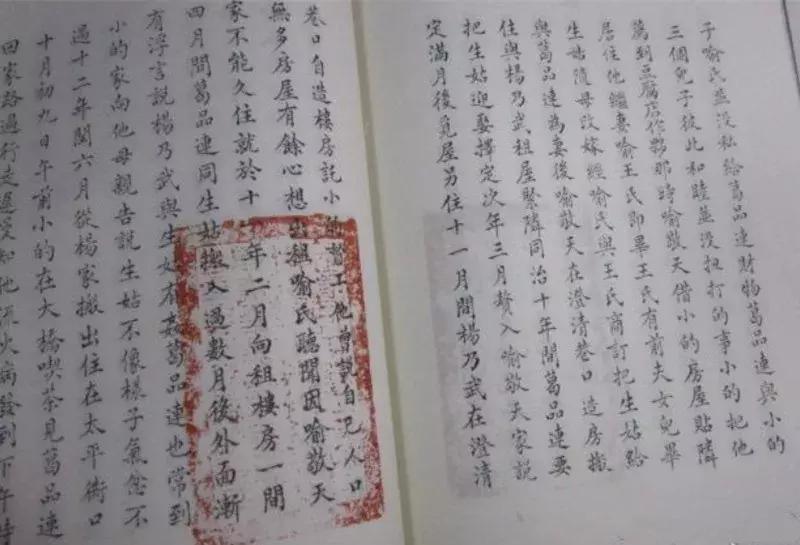 子喻氏並沒私給葛品連財物葛品連與小的
三個兒子彼此和睦並沒扭打的事小的把他
薦到豆腐店作夥那時喻敬天借小的房屋貼隣
居住他繼妻喻王氏即畢王氏有前夫女兒畢
生姑隨母改嫁經喻氏與王氏商訂把生姑給
與葛品連為妻後喻敬天在澄清巷口造房搬
住與楊乃武租屋緊隣同治十年間葛品連要
把生姑迎娶擇定次年三月贅入喻敬天家説
定滿月後覓屋另住十一月間楊乃武在澄清
巷口自造樓房託小的督工他曾說自己人口
無多房屋有餘心想出租喻氏聽聞因喻敬天
家不能久住就於十年二月向租樓房一間
四月間葛品連同生姑搬入過數月後外面漸
有浮言說楊乃武與生姑有姦葛品連也常到
小的家向他母親告說生姑不像樣子氣忿不
過十二年閏六月從楊家搬出住在太平衖口
十月初九日午前小的在大橋喫茶見葛品連
回家路過行走遲慢知他流火病發到下午時